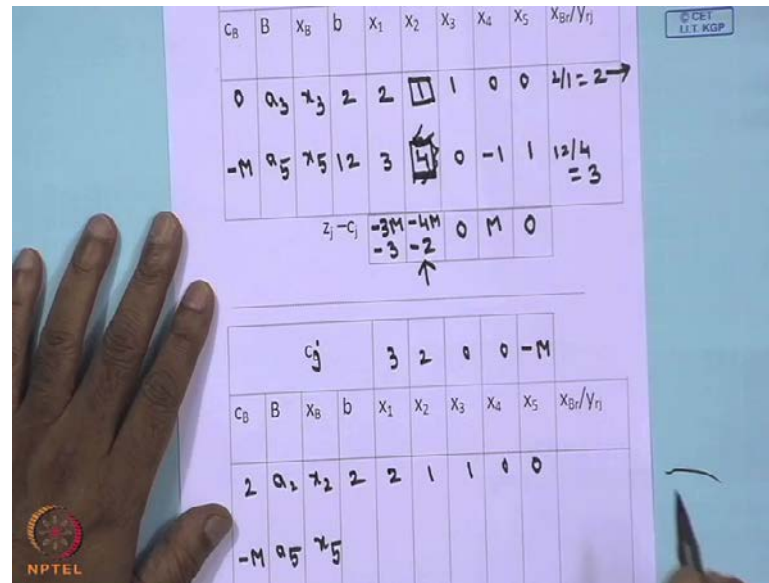 © CET
I.I.T. KGP
C_B B X_B b X_1 X_2 X_3 X_4 X_5 X_Br/Y_rj
0 a_3 x_3 2 2 1 1 0 0 2/1 = 2 →
-M a_5 x_5 12 3 4 0 -1 1 12/4
= 3
z_j - c_j -3M -4M 0 M 0
-3 -2
↑
c_j 3 2 0 0 -M
C_B B X_B b X_1 X_2 X_3 X_4 X_5 X_Br/Y_rj
2 a_2 x_2 2 2 1 1 0 0
-M a_5 x_5
NPTEL